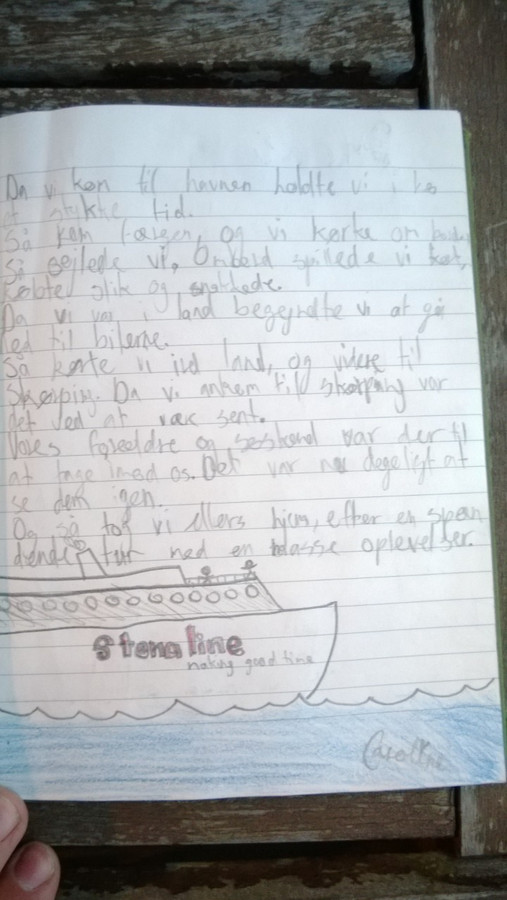 Da vi kom til havnen holdte vi i kø
et stykke tid.
Så kom færgen, og vi kørte om
Så sejlede vi, Ombord spillede vi kort,
købte slik og snakkede.
Da vi var i land begyndte vi at gå
ned til bilerne.
Så kørte vi ind land, og videre til
Skørping. Da vi ankom til skørping var
det ved at være sent.
Vores forældre og søskend var der til
at tage imod os. Det var nu dejeligt at
se dem igen.
Og så tog vi ellers hjem, efter en spæn
dende tur med en masse oplevelser.
Stena line
making good time
Caroline